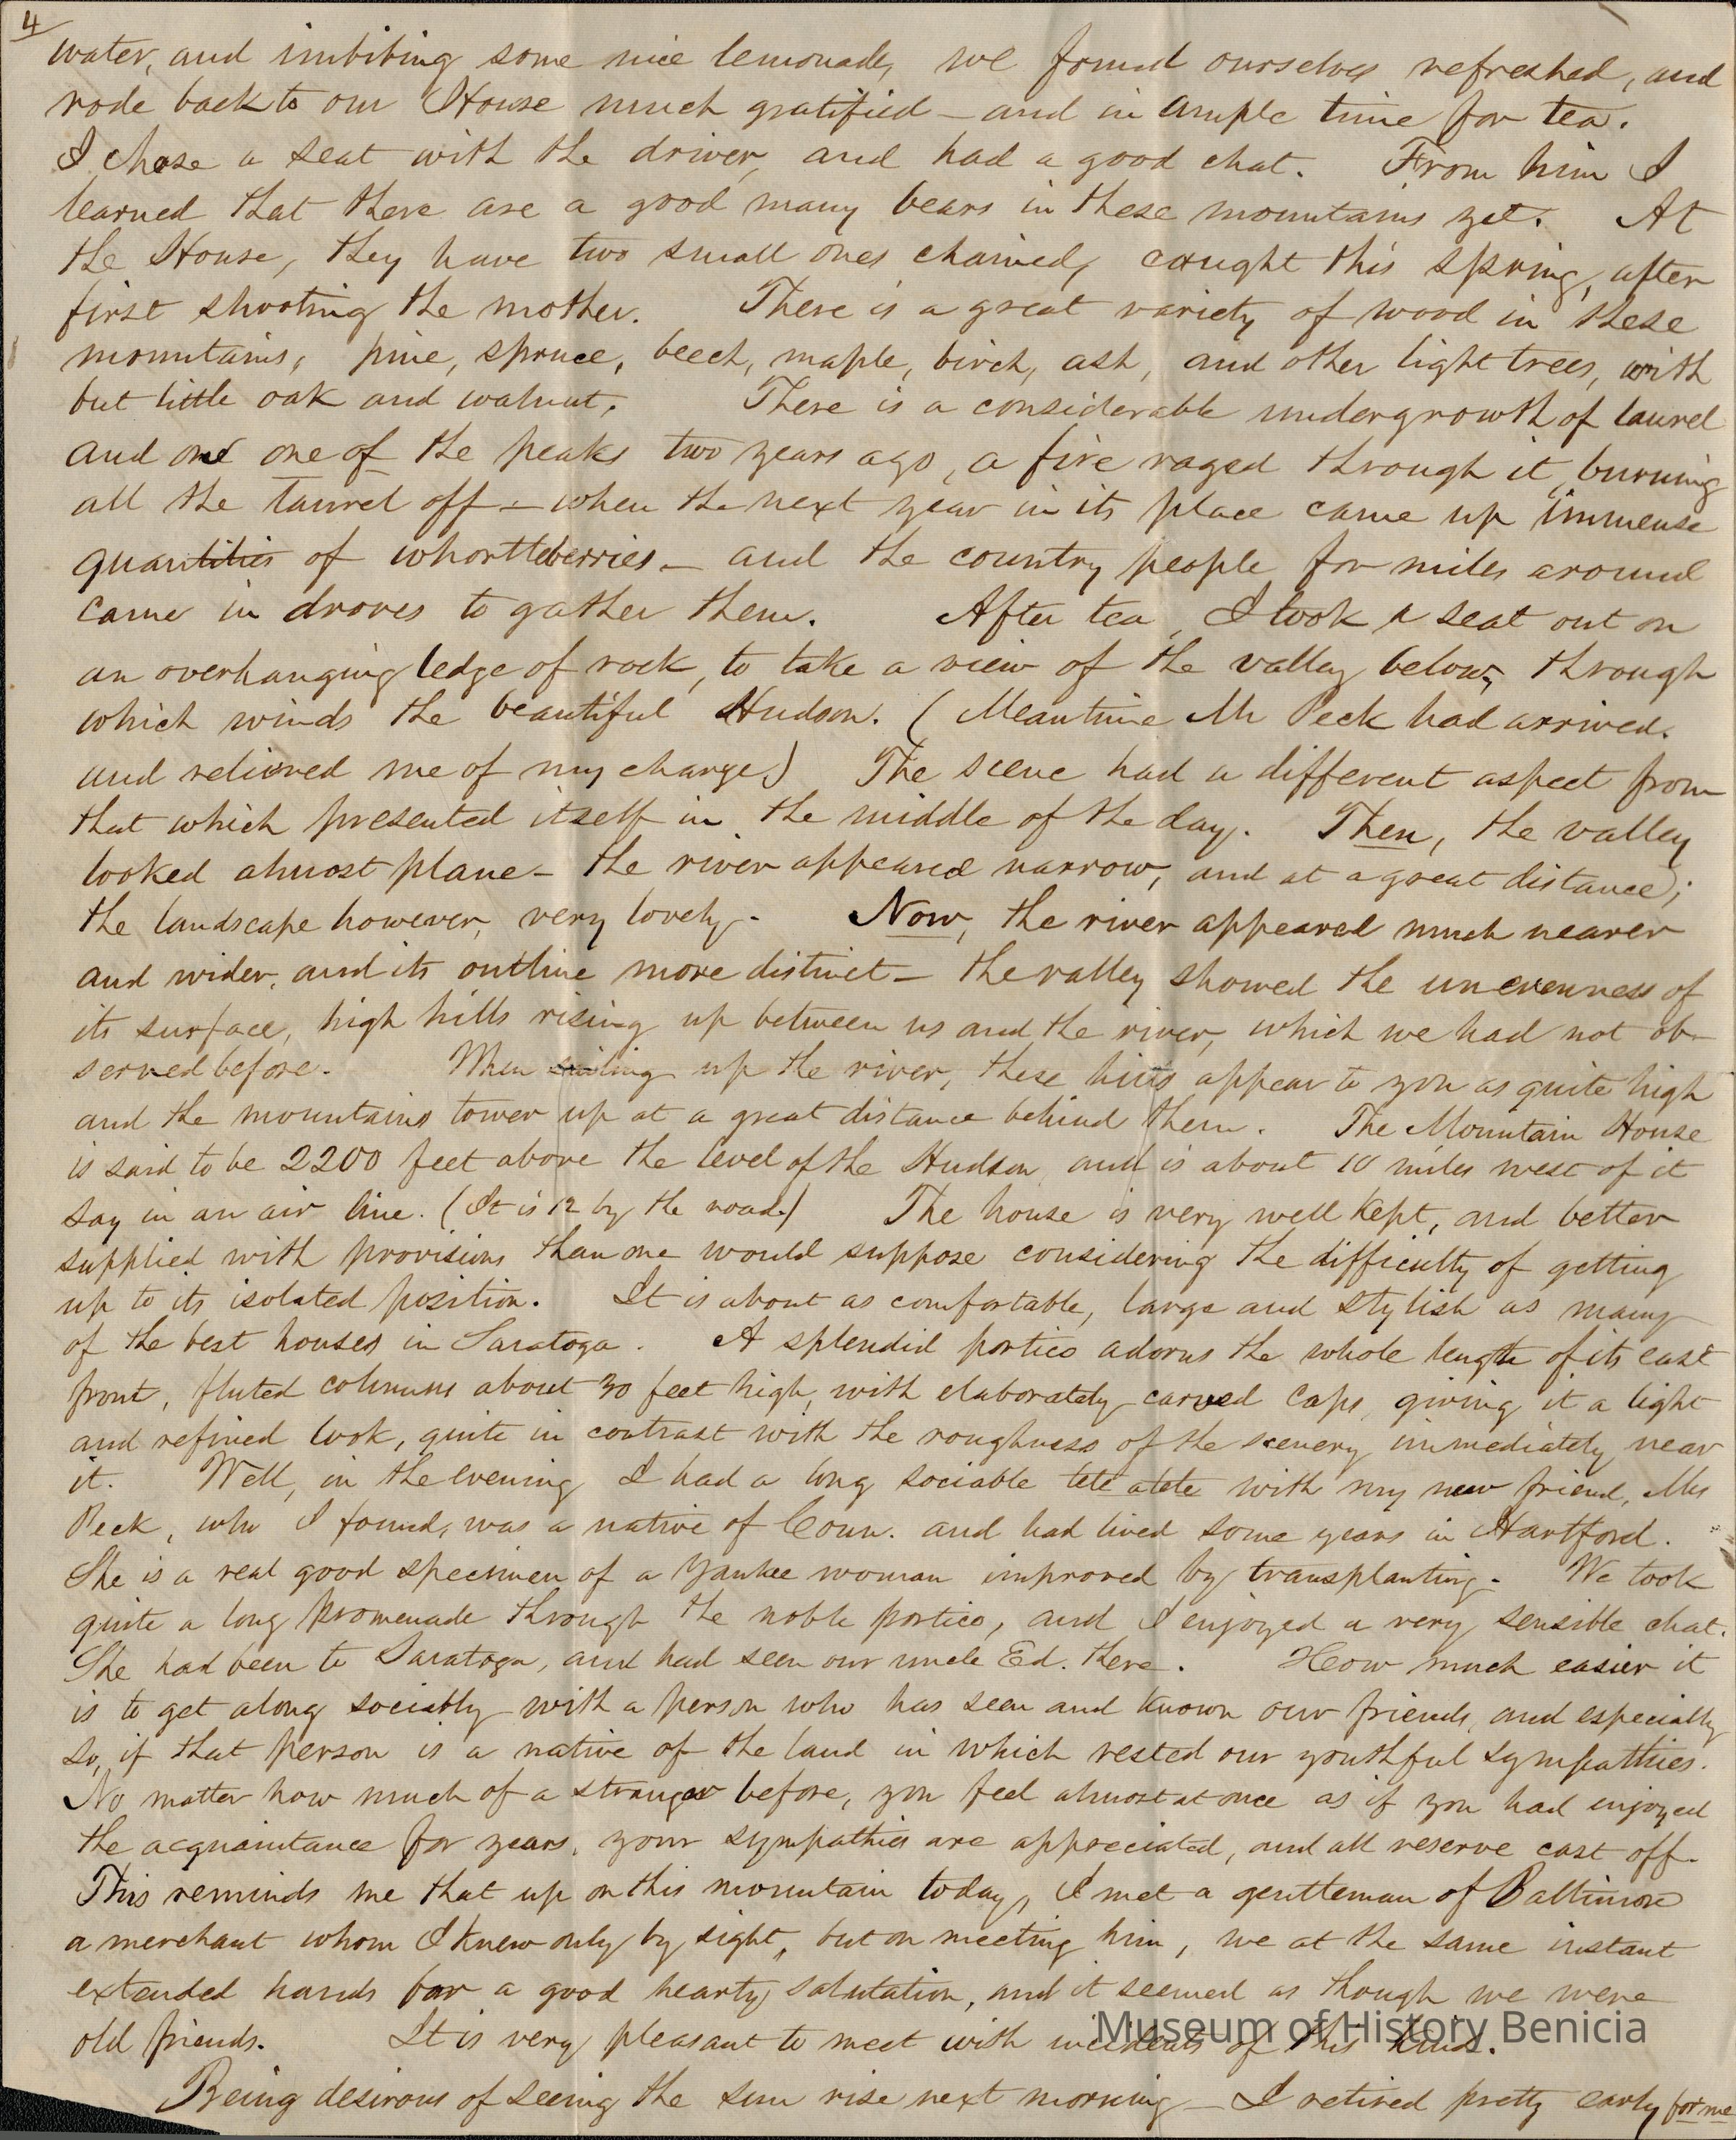 4
water, and imbibing some nice lemonade, we found ourselves refreshed, and
rode back to our House much gratified — and in ample time for tea.
I chose a seat with the driver, and had a good chat. From him I
learned that there are a good many bears in these mountains yet. At
the House, they have two small ones chained, caught this spring, after
first shooting the mother. There is a great variety of wood in these
mountains, pine, spruce, beech, maple, birch, ash, and other light trees, with
but little oak and walnut. There is a considerable undergrowth of laurel
and one one of the peaks two years ago, a fire raged through it, burning
all the laurel off — when the next year in its place came up immense
quantities of whortleberries — and the country people for miles around
came in droves to gather them. After tea, I took a seat out on
an overhanging ledge of rock, to take a view of the valley below, through
which winds the beautiful Hudson. (Meantime Mr Peck had arrived.
and relieved me of my charge) The scene had a different aspect from
that which presented itself in the middle of the day. Then, the valley
looked almost plane — the river appeared narrow, and at a great distance;
the landscape however, very lovely. Now, the river appeared much nearer
and wider, and its outline more distinct — the valley showed the unevenness of
its surface, high hills rising up between us and the river, which we had not ob-
served before. When sailing up the river, these hills appear to you as quite high
and the mountains tower up at a great distance behind them. The Mountain House
is said to be 2200 feet above the level of the Hudson, and is about 10 miles west of it
say in an air line. (It is 12 by the road.) The house is very well kept, and better
supplied with provisions than one would suppose considering the difficulty of getting
up to its isolated position. It is about as comfortable, large and stylish as many
of the best houses in Saratoga. A splendid portico adorns the whole length of its east
front, fluted columns about 30 feet high, with elaborately carved caps, giving it a light
and refined look, quite in contrast with the roughness of the scenery immediately near
it. Well, in the evening I had a long sociable tete atete with my new friend, Mrs
Peck, who I found, was a native of Conn. and had lived some years in Hartford.
She is a real good specimen of a Yankee woman improved by transplanting. We took
quite a long promenade through the noble portico, and I enjoyed a very sensible chat.
She had been to Saratoga, and had seen our uncle Ed. there. How much easier it
is to get along sociably with a person who has seen and known our friends, and especially
so, if that person is a native of the land in which rested our youthful sympathies.
No matter how much of a stranger before, you feel almost at once as if you had enjoyed
the acquaintance for years, your sympathies are appreciated, and all reserve cast off.
This reminds me that up on this mountain today, I met a gentleman of Baltimore
a merchant whom I knew only by sight, but on meeting him, we at the same instant
extended hands for a good hearty salutation, and it seemed as though we were
old friends. It is very pleasant to meet with incidents of this kind.
Museum of History Benicia
Being desirous of seeing the sun rise next morning — I retired pretty early for me